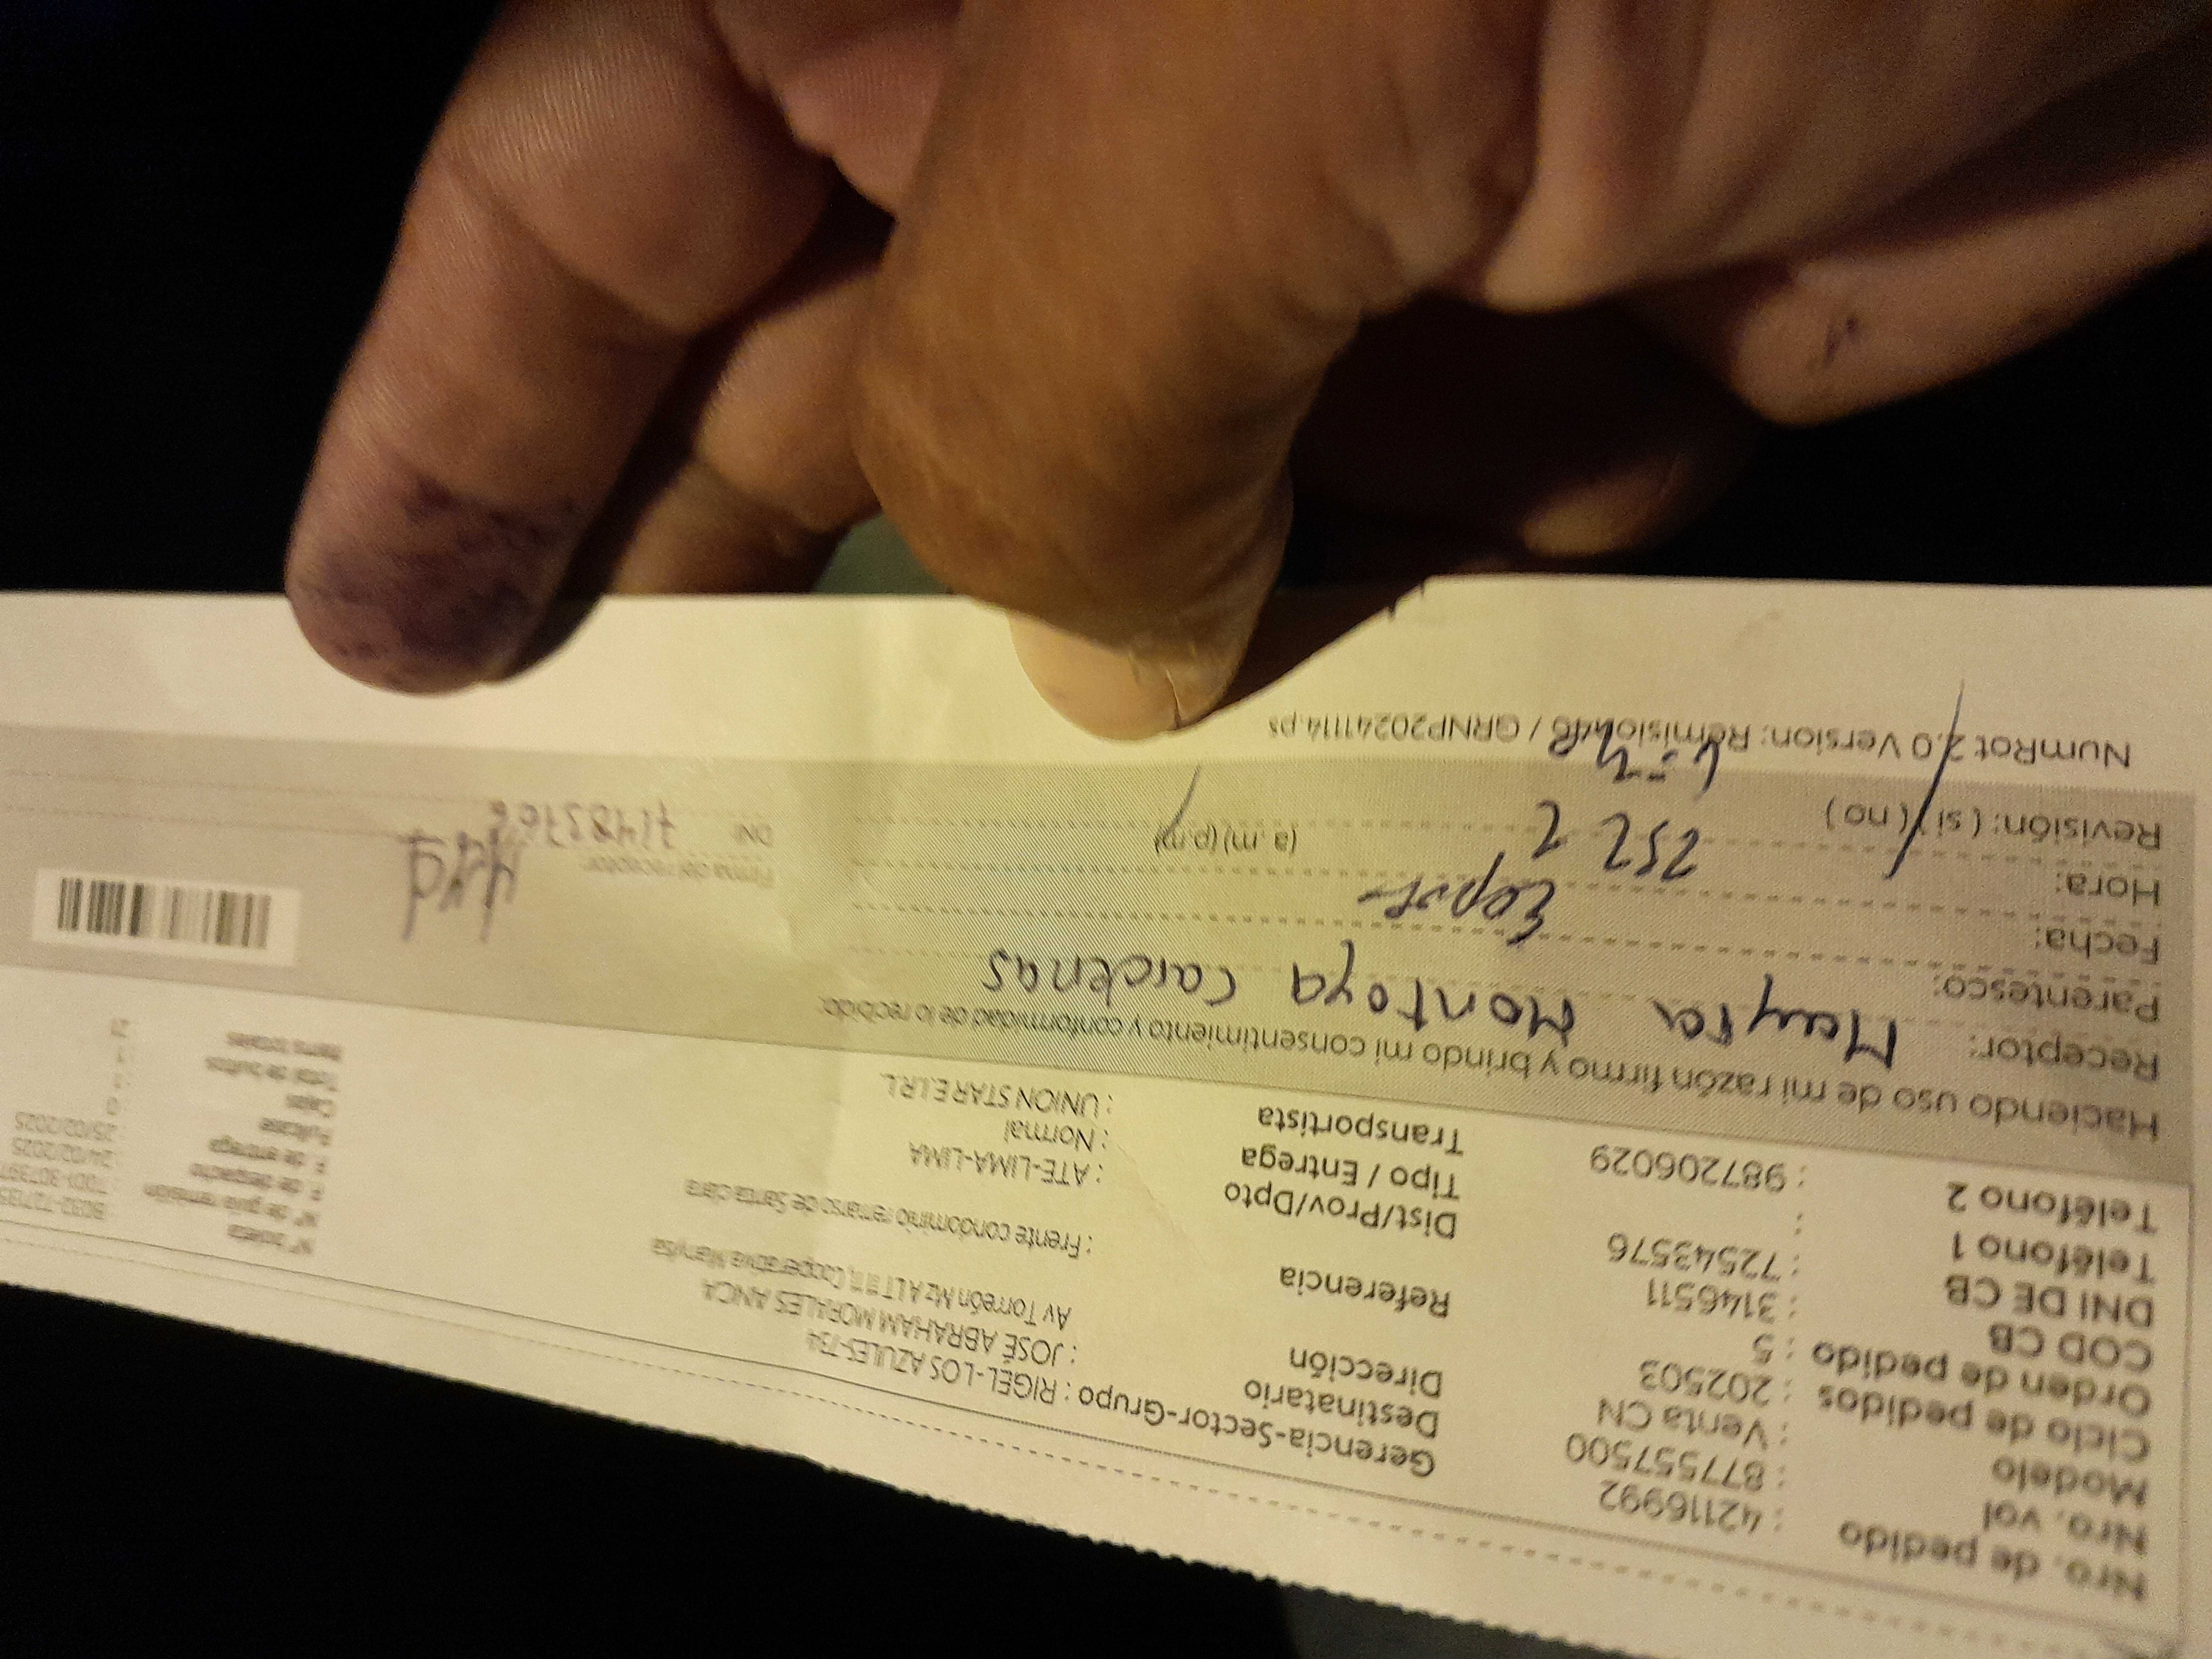 Nro. de pedido : 42116992
Nro. vol : 877557500
Modelo : Venta CN
Ciclo de pedidos : 202503
Orden de pedido : 5
COD CB : 3146511
DNI DE CB : 72543576
Teléfono 1 :
Teléfono 2 : 987206029
Gerencia-Sector-Grupo : RIGEL-LOS AZULES-734
Destinatario : JOSÉ ABRAHAM MORALES ANCA
Dirección Av Torreón Mz A LT Cooperativa Manylsa
Referencia : Frente condominio remanso de Santa clara
Dist/Prov/Dpto : ATE-LIMA-LIMA
Tipo / Entrega : Normal
Transportista : UNION STAR E.I.R.L.
N° boleta
N° de guía remisión
F. de despacho : 24/02/2025
F. de entrega : 25/02/2025
Fullcase : 0
Caja : 1
Total de bultos : 1
Items totales : 21
Haciendo uso de mi razón firmo y brindo mi consentimiento y conformidad de lo recibido:
Receptor: Mayra Montoya Cardenas
Parentesco:
Fecha:
Hora: (a.m) (p.m)
Revisión: (si) (no)
Firma del receptor:
DNI:
NumRot 2.0 Version: / GRNP20241114.ps